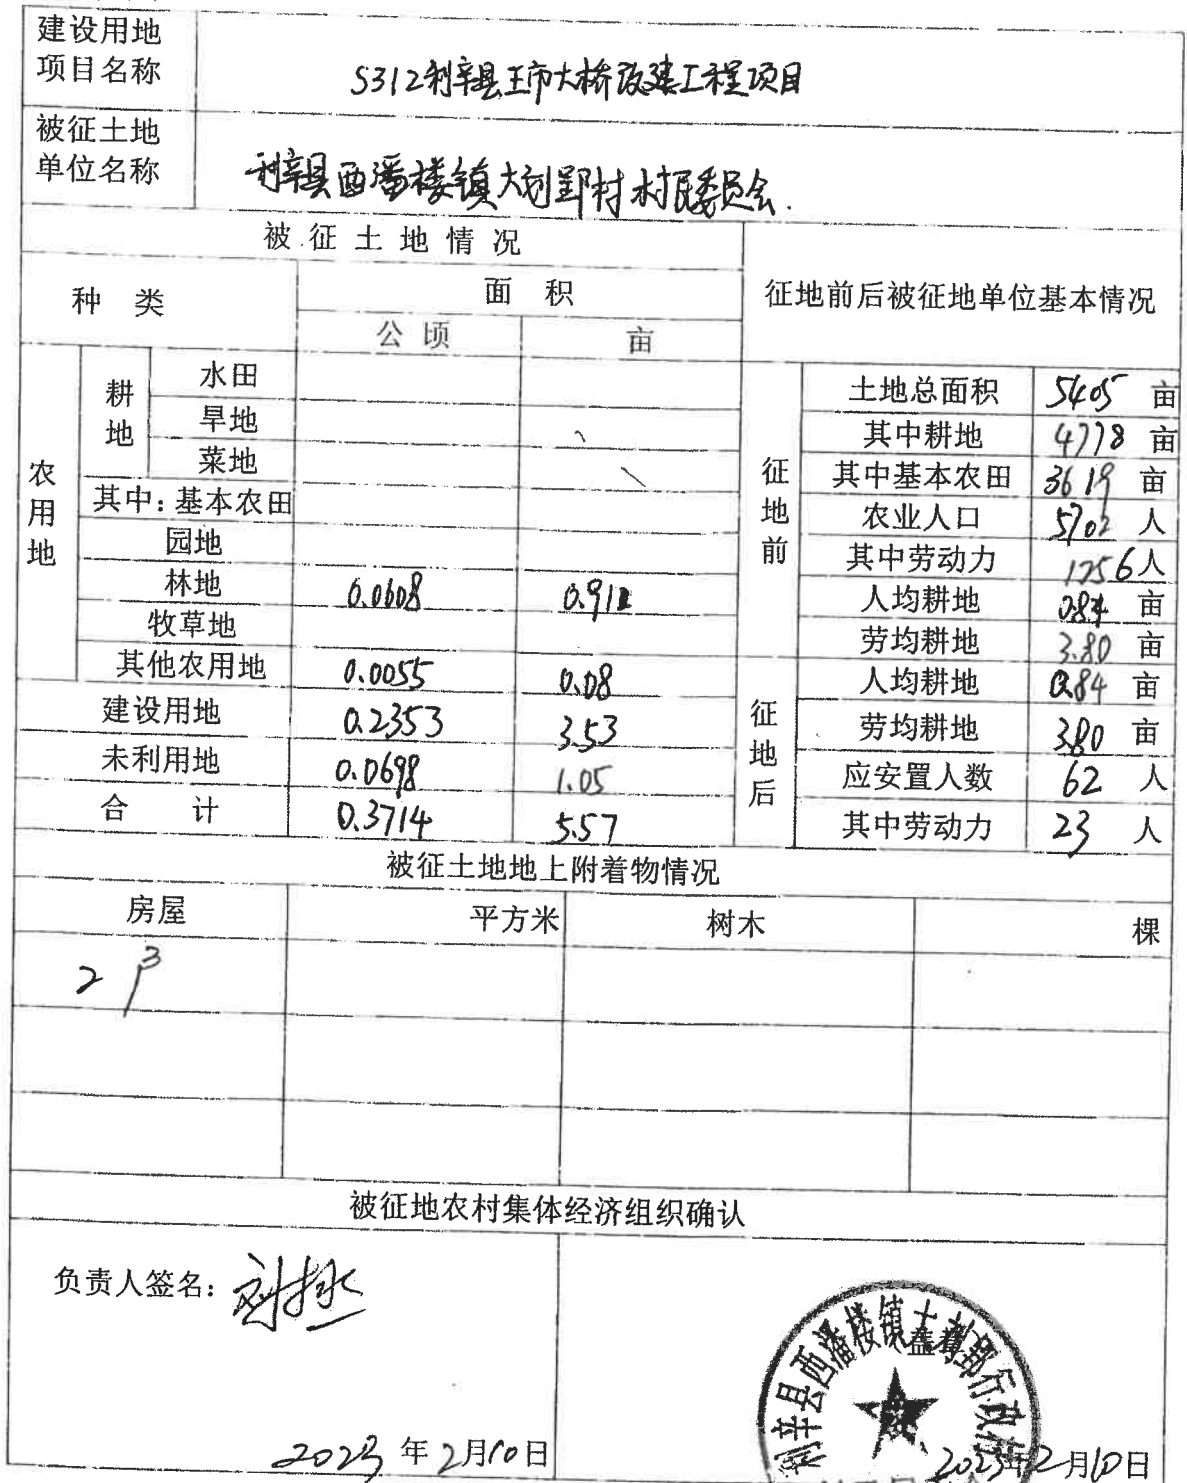 建设用地
项目名称
S312利辛县王市大桥改建工程项目
被征土地
单位名称
利辛县西潘楼镇大刘郢村村民委员会.
被征土地情况
征地前后被征地单位基本情况
种 类
面 积
公顷 亩
农用地
耕地
水田
旱地
菜地
其中：基本农田
园地
林地 0.0608 0.91
牧草地
其他农用地 0.0055 0.08
建设用地 0.2353 3.53
未利用地 0.0698 1.05
合 计 0.3714 5.57
征地前
土地总面积 5405 亩
其中耕地 4778 亩
其中基本农田 3619 亩
农业人口 5702 人
其中劳动力 1256人
人均耕地 0.84 亩
劳均耕地 3.80 亩
征地后
人均耕地 0.84 亩
劳均耕地 3.80 亩
应安置人数 62 人
其中劳动力 23 人
被征土地地上附着物情况
房屋 平方米 树木 棵
2户
被征地农村集体经济组织确认
负责人签名：刘
2023年2月10日
利辛县西潘楼镇大刘郢行政村
盖章
2023年2月10日